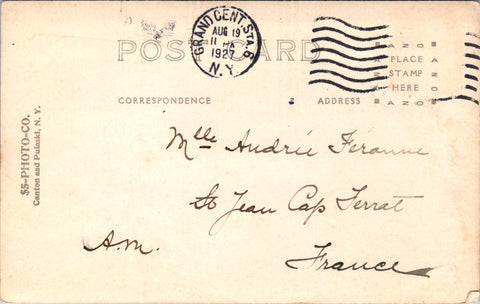 GRAND CENT. STA. 6
AUG 19
11
1927
N.Y.
POST CARD
CORRESPONDENCE
ADDRESS
AZO AZO
PLACE
STAMP
HERE
AZO
$5-PHOTO-CO.
Canton and Pulaski, N. Y.
Mlle Andrée
St Jean Cap Ferrat
France
A.M.